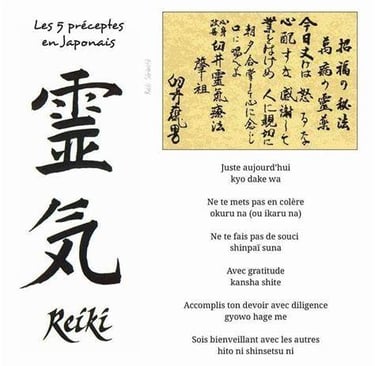 Les 5 préceptes
en Japonais
靈
気
Reiki
招福の秘法
萬病の霊薬
今日丈けは怒るな
心配すな感謝して
業をはげめ人に親切に
朝夕合掌して心に念じ
口に唱へよ
心身改善 臼井靈氣療法
肇祖
臼井甕男
Juste aujourd'hui
kyo dake wa
Ne te mets pas en colère
okuru na (ou ikaru na)
Ne te fais pas de souci
shinpaï suna
Avec gratitude
kansha shite
Accomplis ton devoir avec diligence
gyowo hage me
Sois bienveillant avec les autres
hito ni shinsetsu ni